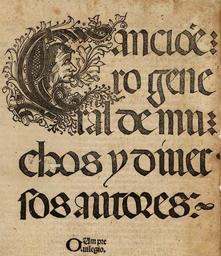 Cancioẽ:
ro gene
ral de mu
chos y diuer
sos autores:~
Cum pre
uilegio.